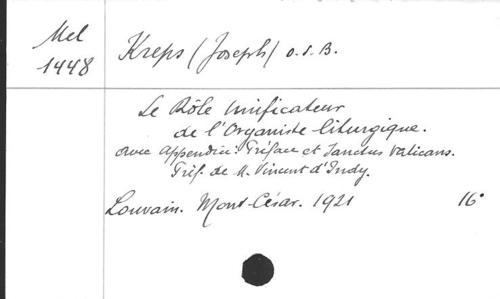 Mel
1448
Kreps (Joseph) O.S.B.
Le Rôle Unificateur
de l'Organiste liturgique.
avec appendice: Préface et Sanctus Vaticans.
Préf. de M. Vincent d'Indy.
Louvain. Mont-César. 1921 16°